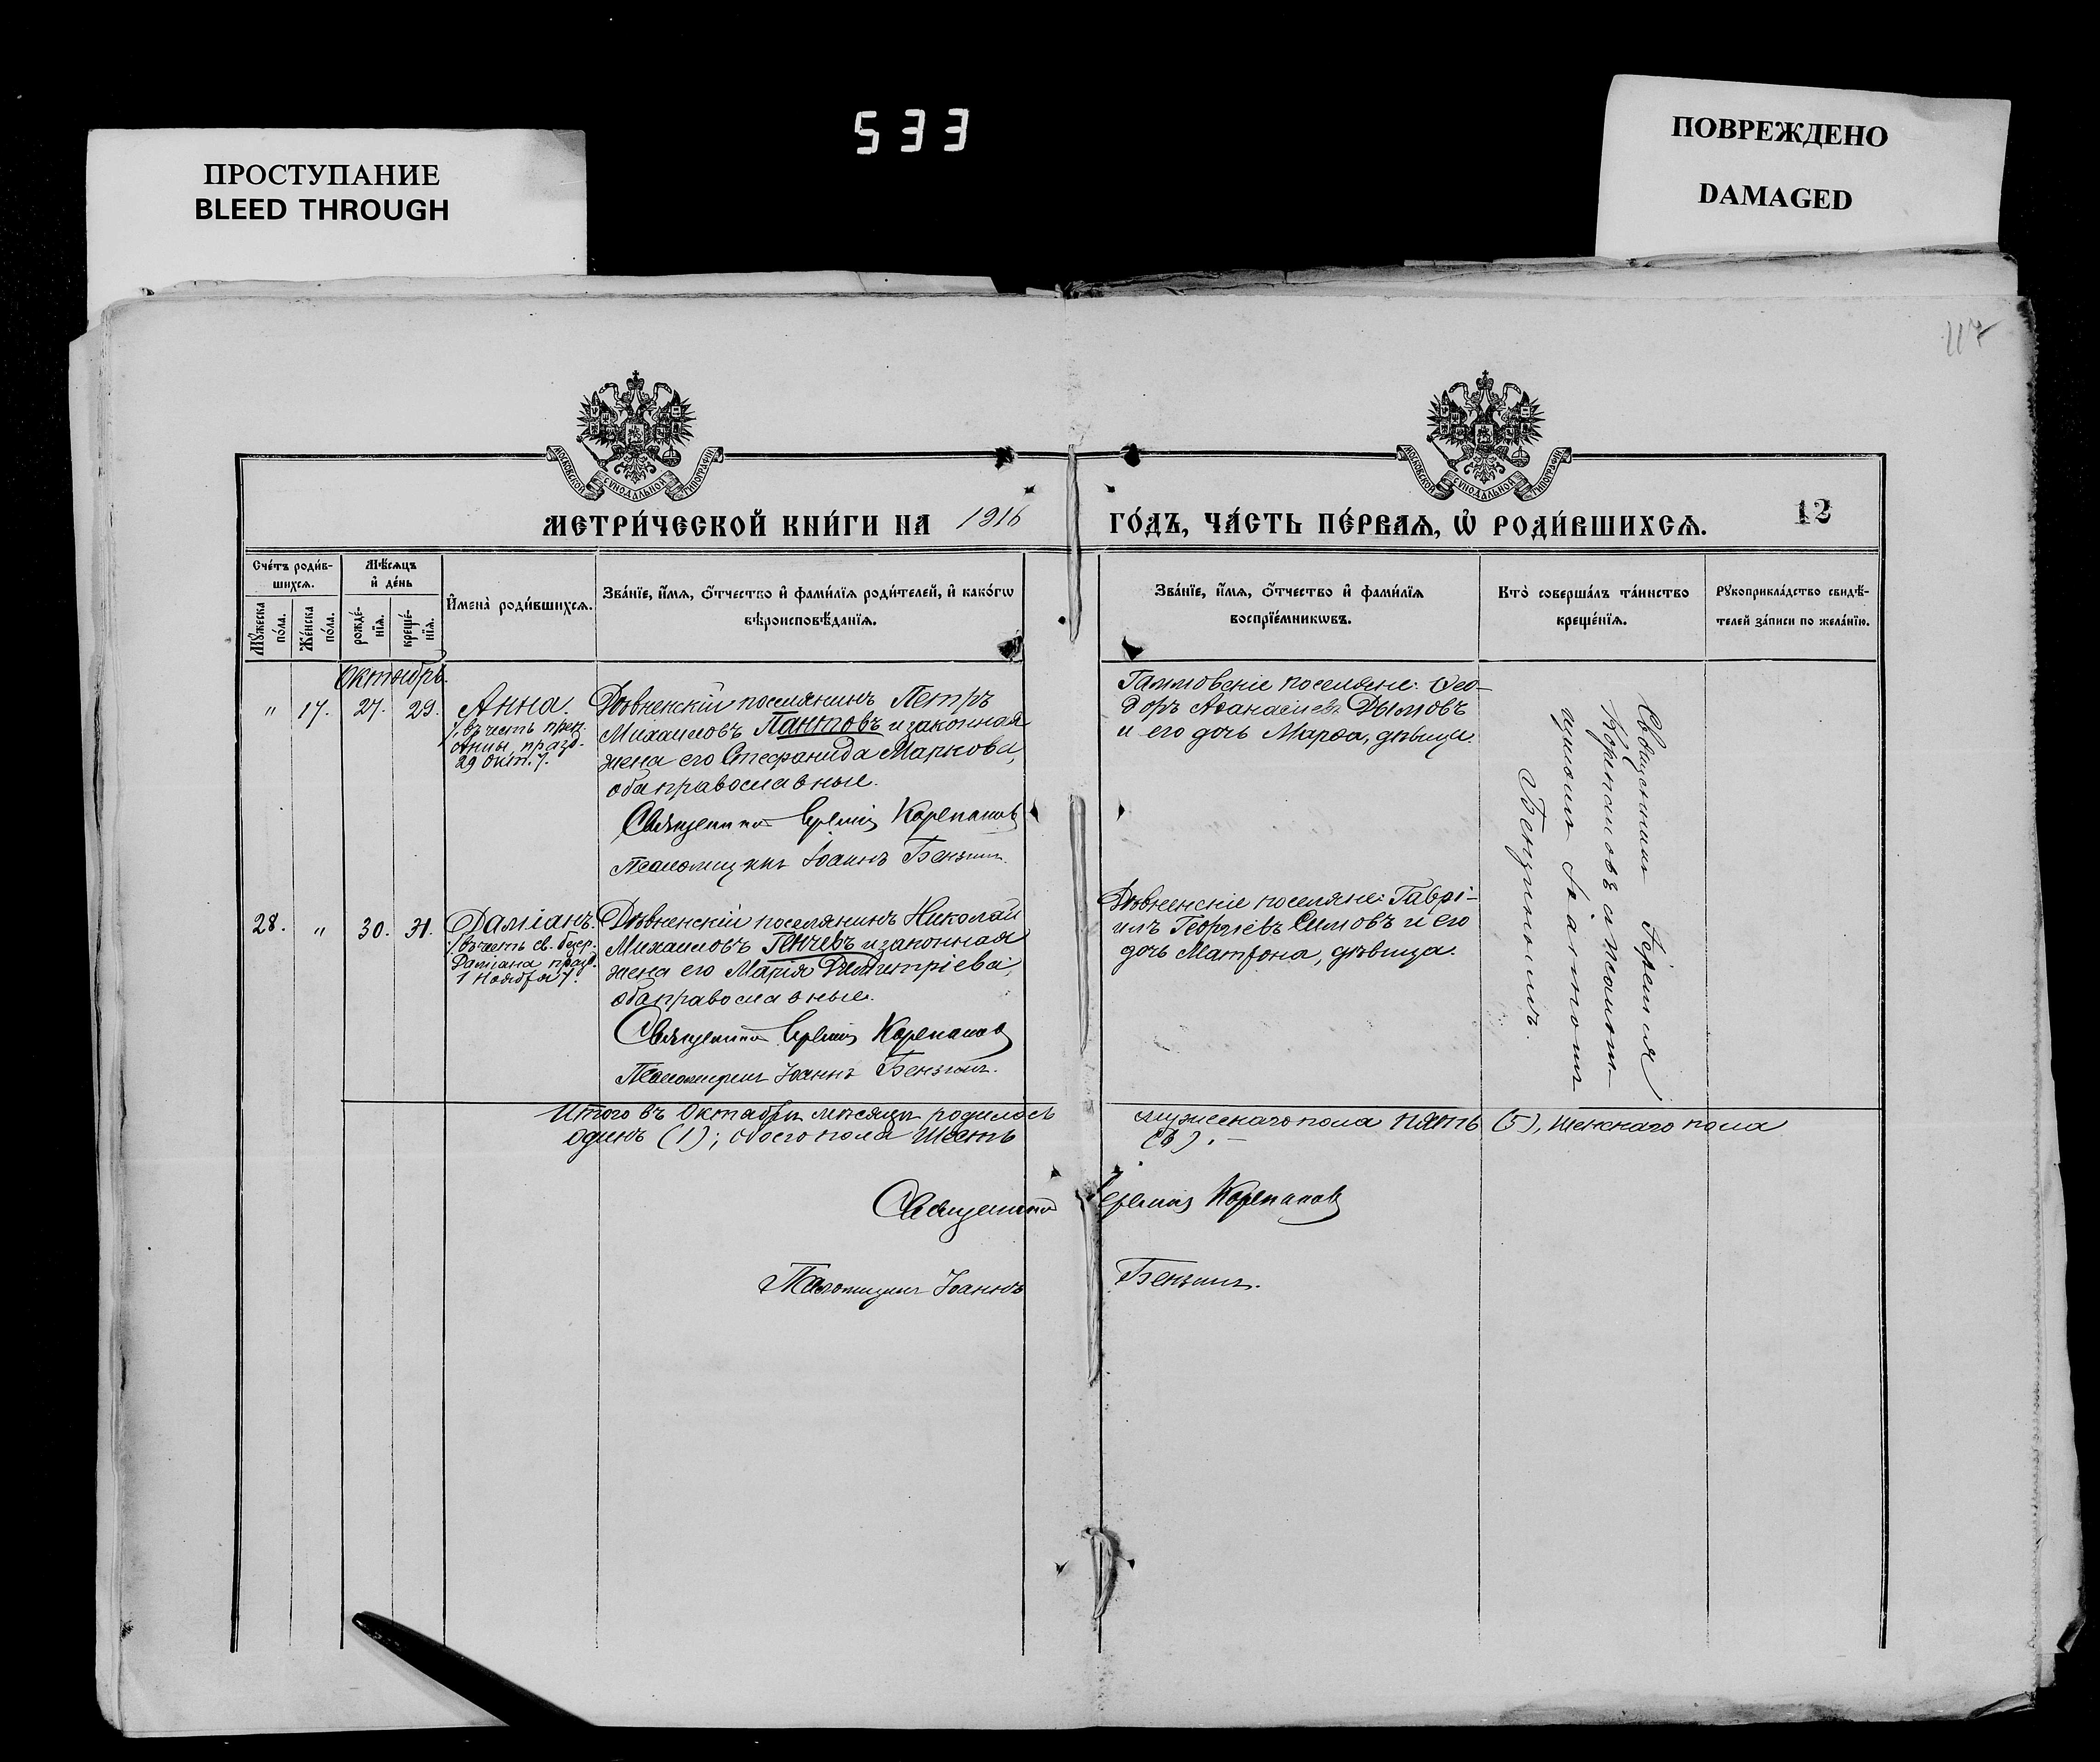 533
ПРОСТУПАНИЕ
BLEED THROUGH
ПОВРЕЖДЕНО
DAMAGED
117
МОСКОВСКОЙ СУНОДАЛЬНОЙ ТИПОГРАФІИ
МОСКОВСКОЙ СУНОДАЛЬНОЙ ТИПОГРАФІИ
МЕТРИ́ЧЕСКОЙ КНИ́ГИ НА 1916 ГО́ДЪ, ЧА́СТЬ ПЕ́РВАѦ, Ѡ РОДИ́ВШИХСѦ.
12
Сче́тъ роди́в-
шихсѧ.
Мꙋ́жеска
по́ла.
Же́нска
по́ла.
Мѣ́сѧцъ
и҆ де́нь
рожде́-
нїѧ.
креще́-
нїѧ.
И҆мена̀ роди́вшихсѧ.
Зва́нїе, и҆́мѧ, ѻ҆́тчество и҆ фами́лїѧ роди́телей, и҆ како́гѡ
вѣроисповѣ́данїѧ.
Зва́нїе, и҆́мѧ, ѻ҆́тчество и҆ фами́лїѧ
воспрїе́мникѡвъ.
Кто̀ соверша́лъ та́инство
креще́нїѧ.
Рꙋкоприкла́дство свидѣ́-
телей за́писи по жела́нїю.
Октябрь.
" 17. 27. 29. Анна.
/въ честь преп.
Анны, празд.
29 Окт./.
Ровненскій поселянинъ Петръ
Михаиловъ Пантовъ и законная
жена его Стефанида Маркова,
оба православные.
Священникъ Іеремія Корепановъ
Псаломщикъ Іоаннъ Бензинъ.
Гаммовскіе поселяне: Ѳео-
доръ Аѳанасіевъ Дымовъ
и его дочь Марѳа, дѣвица.
28. " 30. 31. Даміанъ.
/въ честь св. безср.
Даміана празд.
1 Ноября/.
Ровненскій поселянинъ Николай
Михаиловъ Генчевъ и законная
жена его Марія Димитріева,
оба православные.
Священникъ Іеремія Корепановъ
Псаломщикъ Іоаннъ Бензинъ.
Ровненскіе поселяне: Гаврі-
илъ Георгіевъ Симовъ и его
дочь Матрона, дѣвица.
Священникъ Іеремія
Корепановъ и псалом-
щикомъ Іоанномъ
Бензиномъ.
Итого въ Октябрѣ мѣсяцѣ родилось мужескаго пола пять (5), женскаго пола
одинъ (1); обоего пола шесть (6). —
Священникъ Іеремія Корепановъ
Псаломщикъ Іоаннъ Бензинъ.